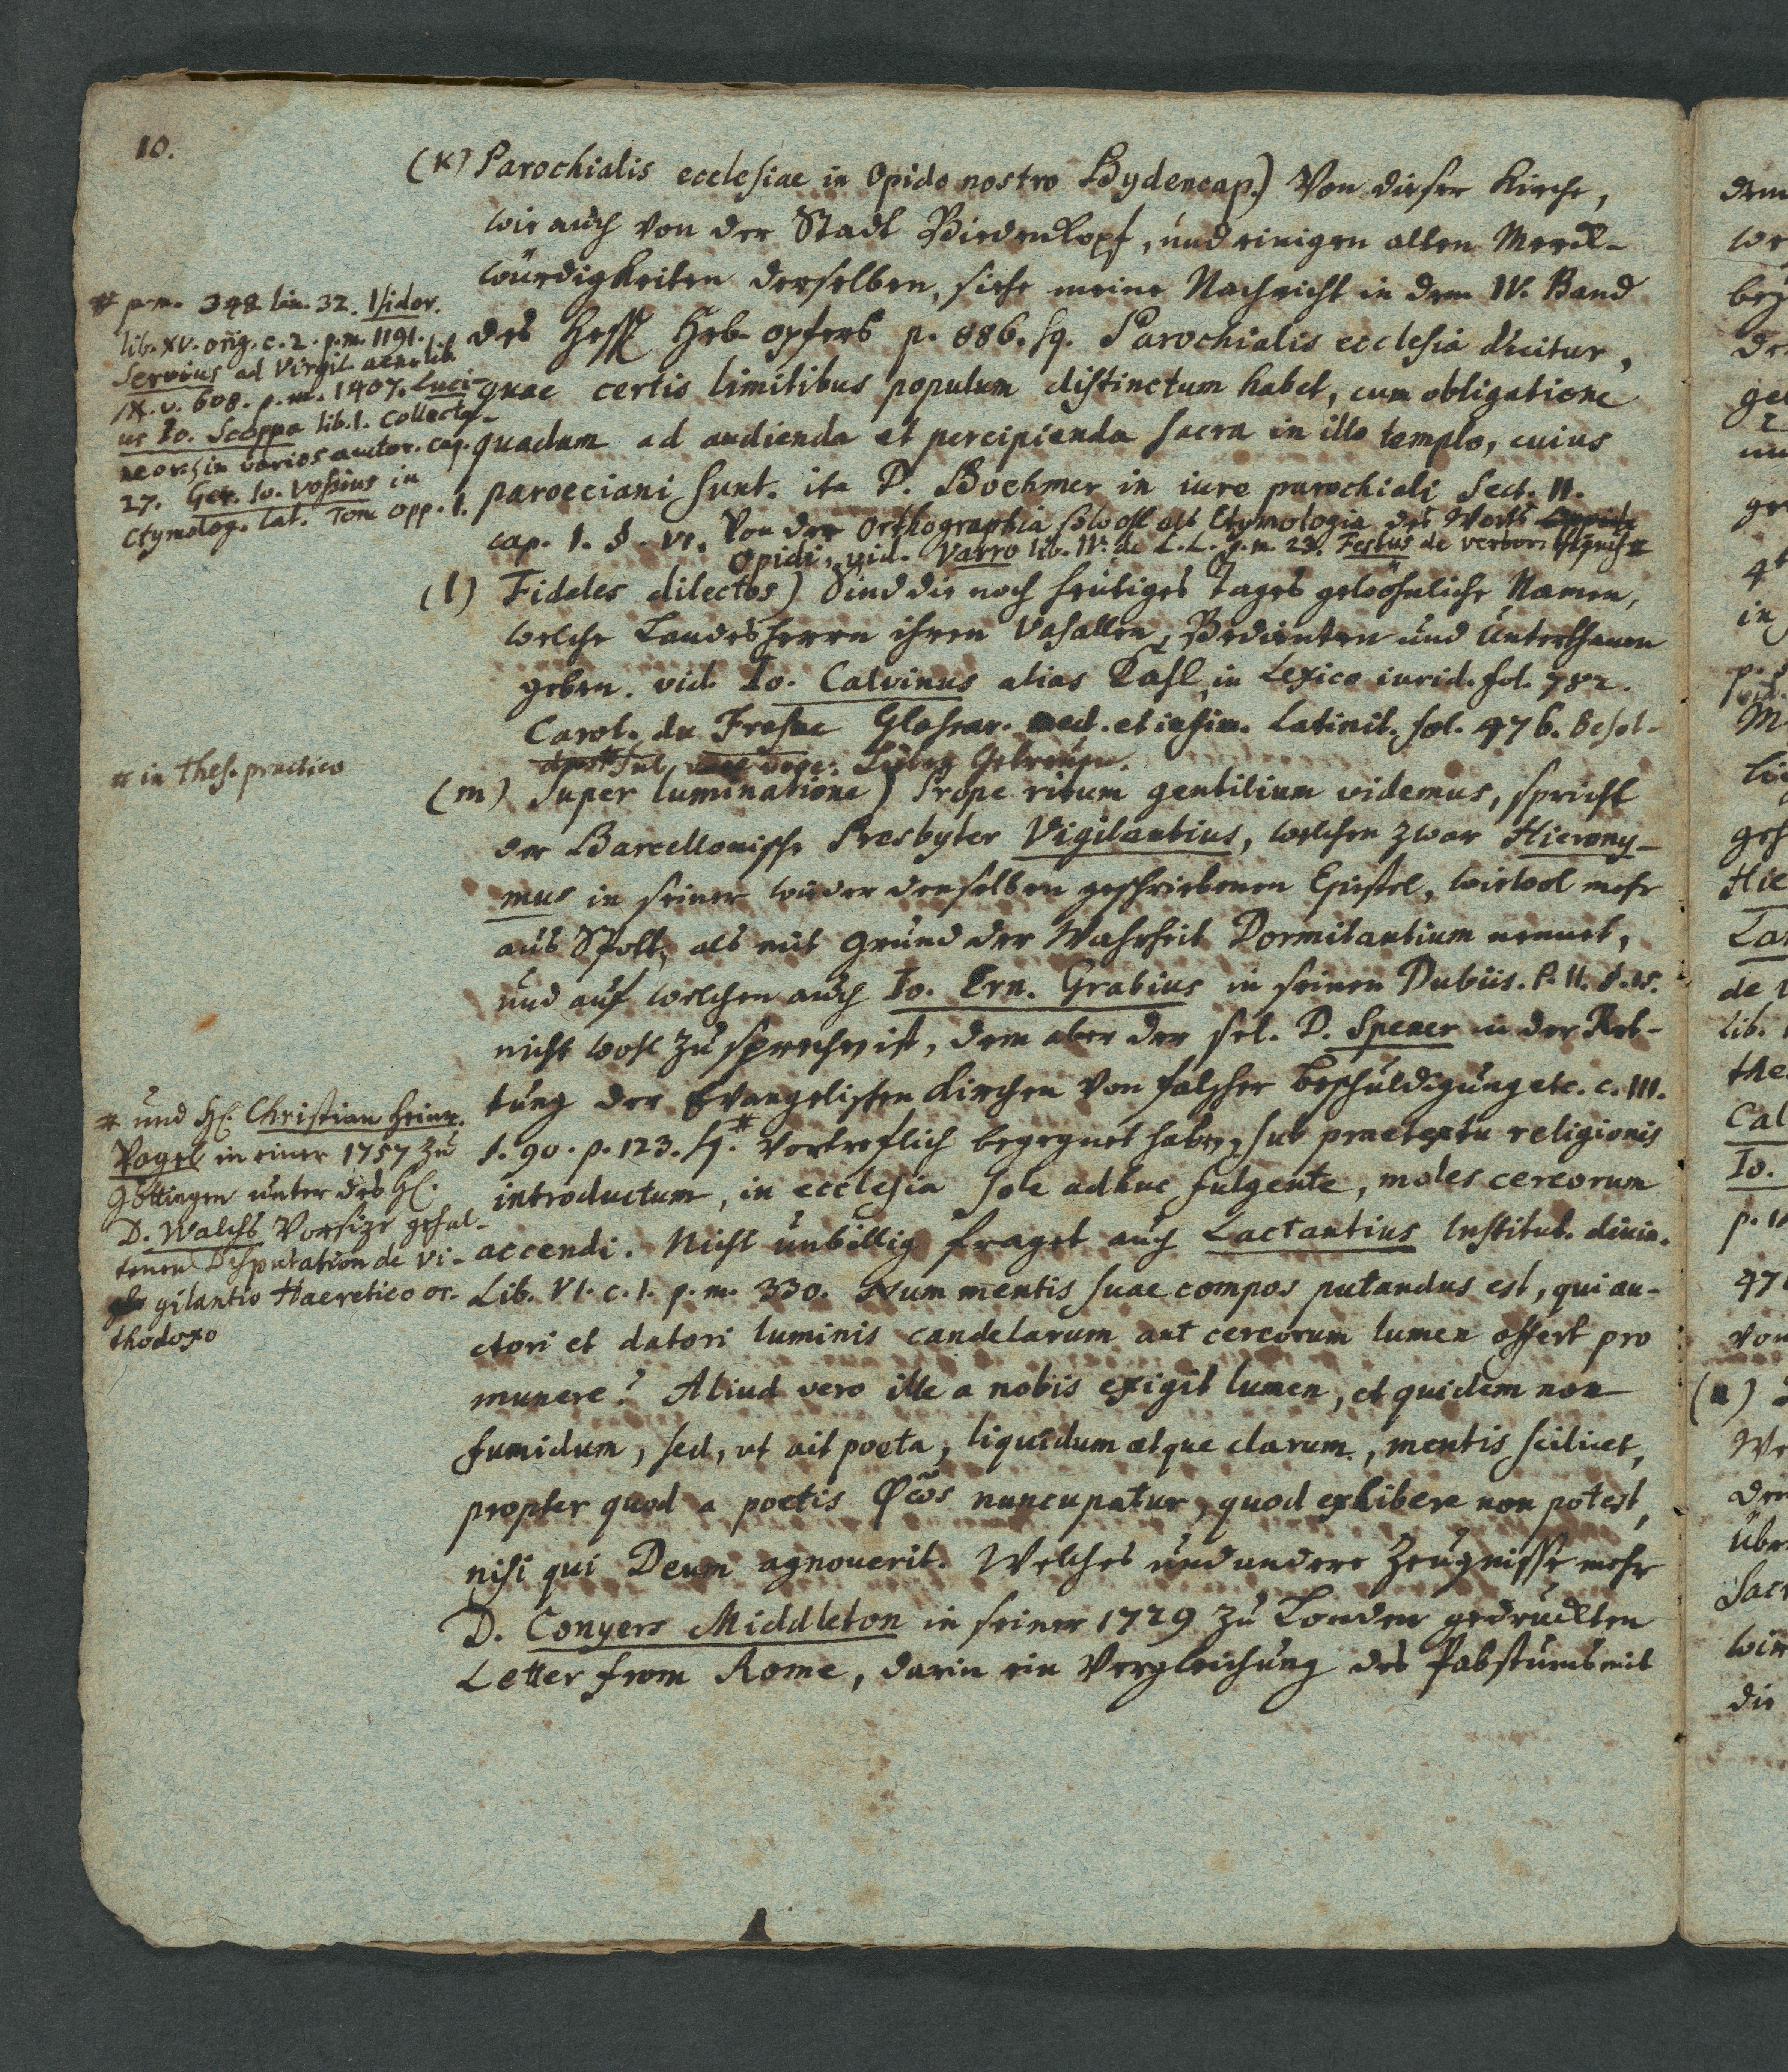 10.
(k) Parochialis ecclesiae in Opido nostro Bydencap.) Von dieser Kirche,
wie auch von der Stadt Biedenkopf, und einigen alten Merck-
würdigkeiten derselben, siehe meine Nachricht in dem IV. Band
des Hess. Heb-opfers p. 886. sq. Parochialis ecclesia dicitur,
quae certis limitibus populum distinctum habet, cum obligatione
quadam ad audienda et percipienda sacra in illo templo, cuius
paroeciani sunt. ita D. Boehmer in iure parochiali Sect. II.
cap. 1. §. VI. Von der Orthographia sowohl als Etymologia des Worts
Opidi, vid. Varro lib. IV. de L. L. p. m. 23. Festus de verbor. #
# p. m. 348. lin. 32. Isidor.
lib. XV. orig. c. 2. p. m. 1191.
Servius ad Virgil. aen. lib.
IX. v. 608. p. m. 1407. Luci-
us Io. Scoppa lib. 1. Collecta-
neor. in varios auctor. cap.
27. Ger. Io. Vossius in
Etymolog. Lat. Tom. opp. 1.
(l) Fideles dilectos) Sind die noch heutiges Tages gewöhnliche Namen,
welche Landesherrn ihren Vasallen, Bedienten und Unterthanen
geben. vid. Io. Calvinus alias Kahl, in Lexico iurid. fol. 782.
Carol. du Fresne Glossar. med. et infim. Latinit. fol. 476. Besol-
dus # voce: Lieben Getreuen.
# in Thes. practico
(m) Super luminatione) Prope ritum gentilium videmus, spricht
der Barcellonische Presbyter Vigilantius, welchen zwar Hierony-
mus in seiner wider denselben geschriebenen Epistel, wiewol mehr
aus Spott, als mit Grund der Wahrheit Dormitantium nennet,
und auf welchen auch Io. Ern. Grabius in seinen Dubiis. P. II. §.
nicht wohl zu sprechen ist, dem aber der sel. D. Spener in der Ret-
tung der Evangelischen Kirchen von falscher Beschuldigung etc. c. III.
§. 90. p. 123. sq. # vortreflich begegnet haben, sub praetextu religionis
introductum, in ecclesia sole adhuc fulgente, moles cereorum
accendi. Nicht unbillig fraget auch Lactantius Institut. divin.
Lib. VI. c. 1. p. m. 330. Num mentis suae compos putandus est, qui au-
ctori et datori luminis candelarum aut cereorum lumen offert pro
munere? Aliud vero ille a nobis exigit lumen, et quidem non
fumidum, sed, ut ait poeta, liquidum atque clarum, mentis scilicet,
propter quod a poetis Φῶς nuncupatur, quod exhibere non potest,
nisi qui Deum agnouerit. Welches und andere Zeugnisse mehr
D. Conyers Middleton in seiner 1729 zu London gedruckten
Letter from Rome, darin ein Vergleichung des Pabstums mit
# und H. Christian Heinr.
Vogel in einer 1757 zu
Göttingen unter des H.
D. Walchs Vorsize gehal-
tenen Disputation de Vi-
gilantio Haeretico or-
thodoxo